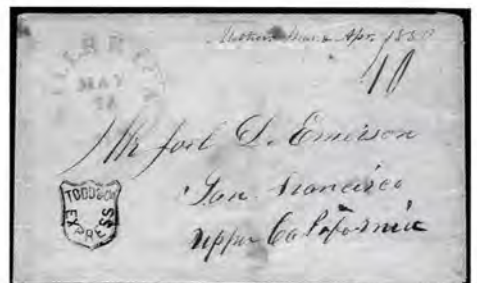 Mar & Apr. 1850
10
MAY
Mr Joel D. Emerson
San Francisco
Upper California
TODD & CO
EXPRESS